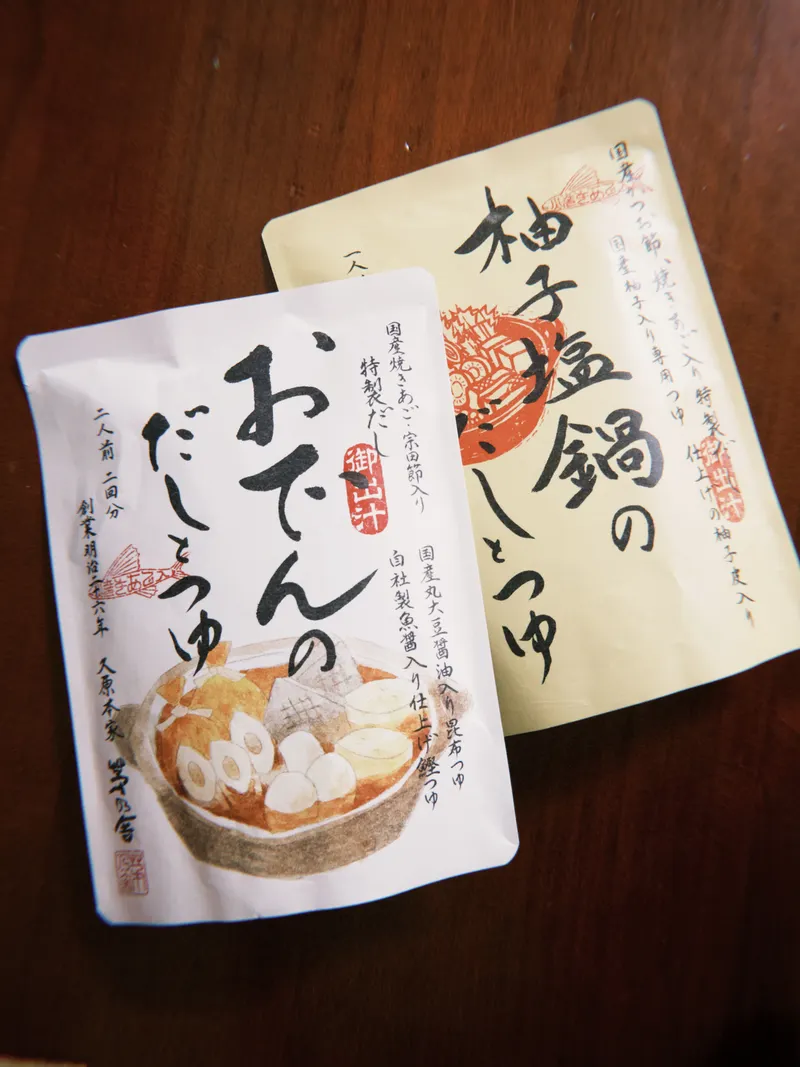 国産焼きあご・宗田節入り
特製だし
御出汁
おでんの
だしとつゆ
国産丸大豆醤油入り昆布つゆ
自社製魚醤入り仕上げ鰹つゆ
二人前 二回分
創業明治二十六年 久原本家 茅乃舎
国産かつお節、焼きあご入り特製だし
国産柚子入り専用つゆ 仕上げの柚子皮入り
御出汁
柚子塩鍋の
だしとつゆ
一人